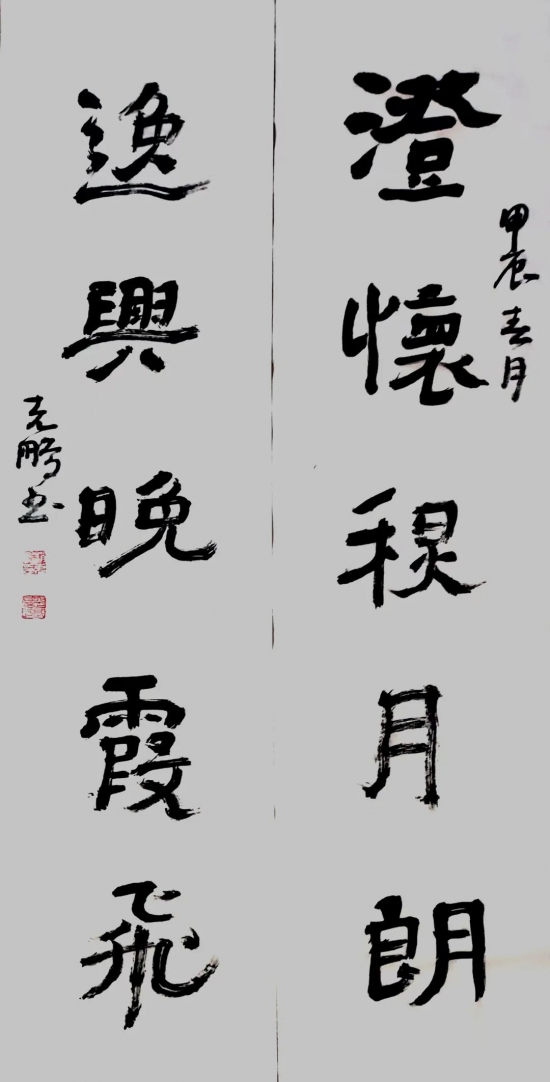 甲辰春月
澄懷秋月朗
逸興晚霞飛
克鵬书